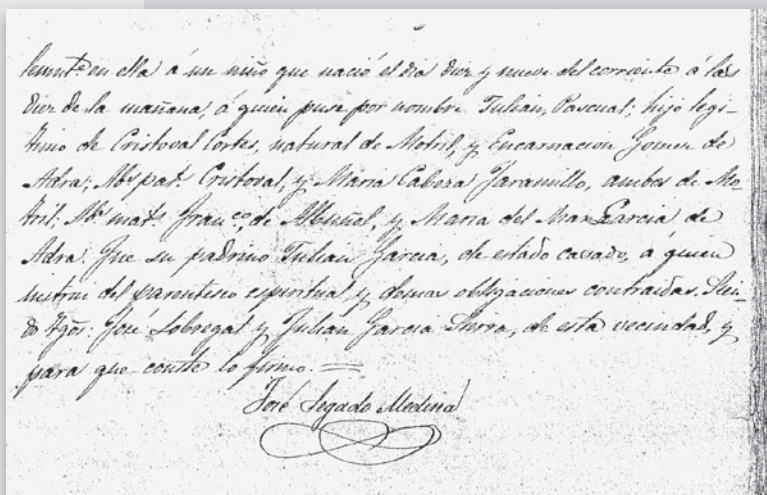 lemnte en ella á un niño que nació el dia diez y nueve del corriente á las
diez de la mañana, á quien puse por nombre Julian, Pascual; hijo legi-
timo de Cristoval Cortes, natural de Motril, y Encarnacion Gomez de
Adra; Abs pats Cristoval, y Maria Cabeza Jaramillo, ambos de Mo-
tril; Abs mats Franco, de Albuñol, y Maria del Mar Garcia de
Adra. Fue su padrino Julian Garcia, de estado casado, á quien
instrui del parentesco espiritual, y demas obligaciones contraidas. Sien-
do tgos: José Lobregat y Julian Garcia Sierra, de esta vecindad, y
para que conste lo firmo.
José Segado Medina